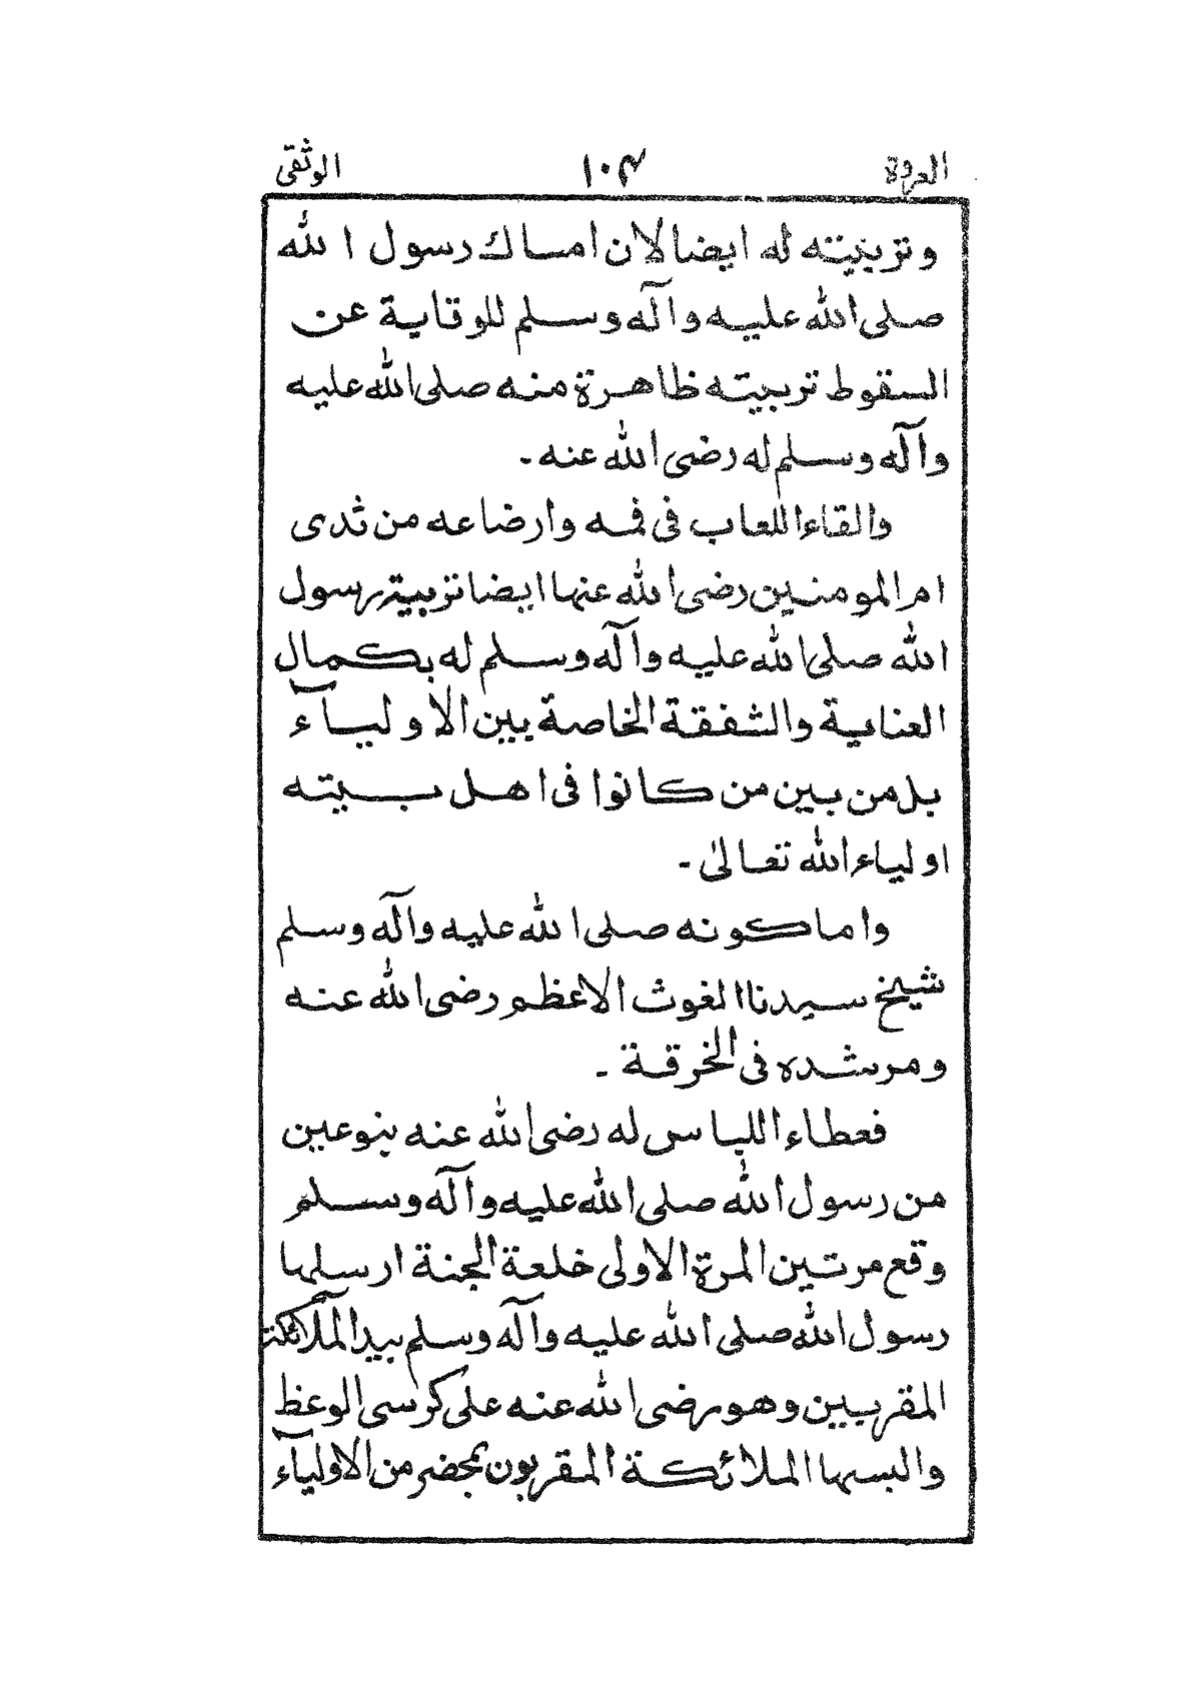 العروة ١٠٤ الوثقى
وتزبيته له ايضا لان امساك رسول الله
صلى الله عليه وآله وسلم للوقاية عن
السقوط تربيته ظاهرة منه صلى الله عليه
وآله وسلم له رضى الله عنه ۔
والقاء اللعاب فى فمه وارضاعه من ثدى
ام المومنين رضى الله عنها ايضا تزبية رسول
الله صلى الله عليه وآله وسلم له بكمال
العناية والشفقة الخاصة بين الاوليآء
بل من بين من كانوا فى اهل بيته
اولياء الله تعالىٰ ۔
واما كونه صلى الله عليه وآله وسلم
شيخ سيدنا الغوث الاعظم رضى الله عنه
ومرشده فى الخرقة ۔
فعطاء اللباس له رضى الله عنه بنوعين
من رسول الله صلى الله عليه وآله وسلم
وقع مرتين المرة الاولى خلعة الجنة ارسلها
رسول الله صلى الله عليه وآله وسلم بيد الملآئكة
المقربين وهو رضى الله عنه على كرسى الوعظ
والبسها الملائكة المقربون بمحضر من الاوليآء